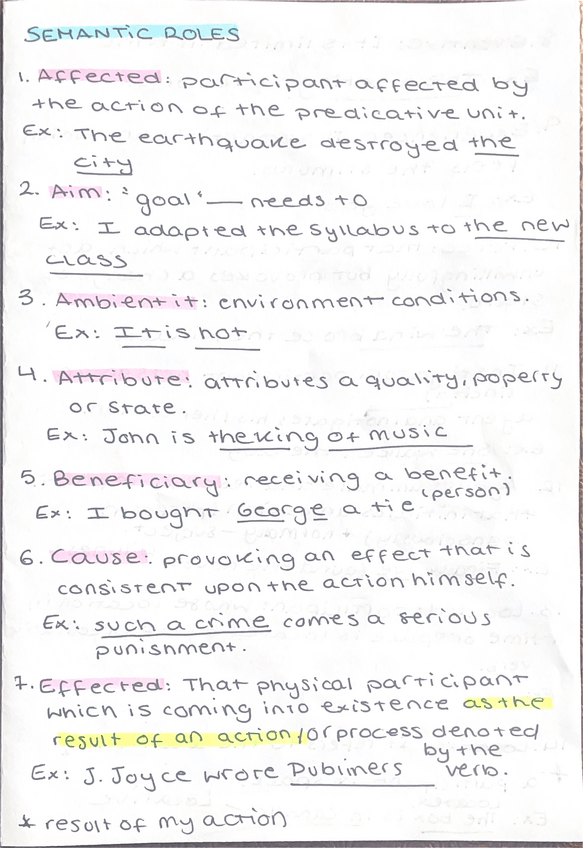 SEMANTIC ROLES
1. Affected: participant affected by
the action of the predicative unit.
Ex: The earthquake destroyed the
city
2. Aim: "goal" — needs to
Ex: I adapted the syllabus to the new
class
3. Ambient it: environment conditions.
Ex: It is hot
4. Attribute: attributes a quality, poperty
or state.
Ex: John is the king of music
5. Beneficiary: receiving a benefit.
(person)
Ex: I bought George a tie.
6. Cause: provoking an effect that is
consistent upon the action himself.
Ex: such a crime comes a serious
punishment.
7. Effected: That physical participant
which is coming into existence as the
result of an action/or process denoted
by the
Ex: J. Joyce wrote Dubliners verb.
* result of my action